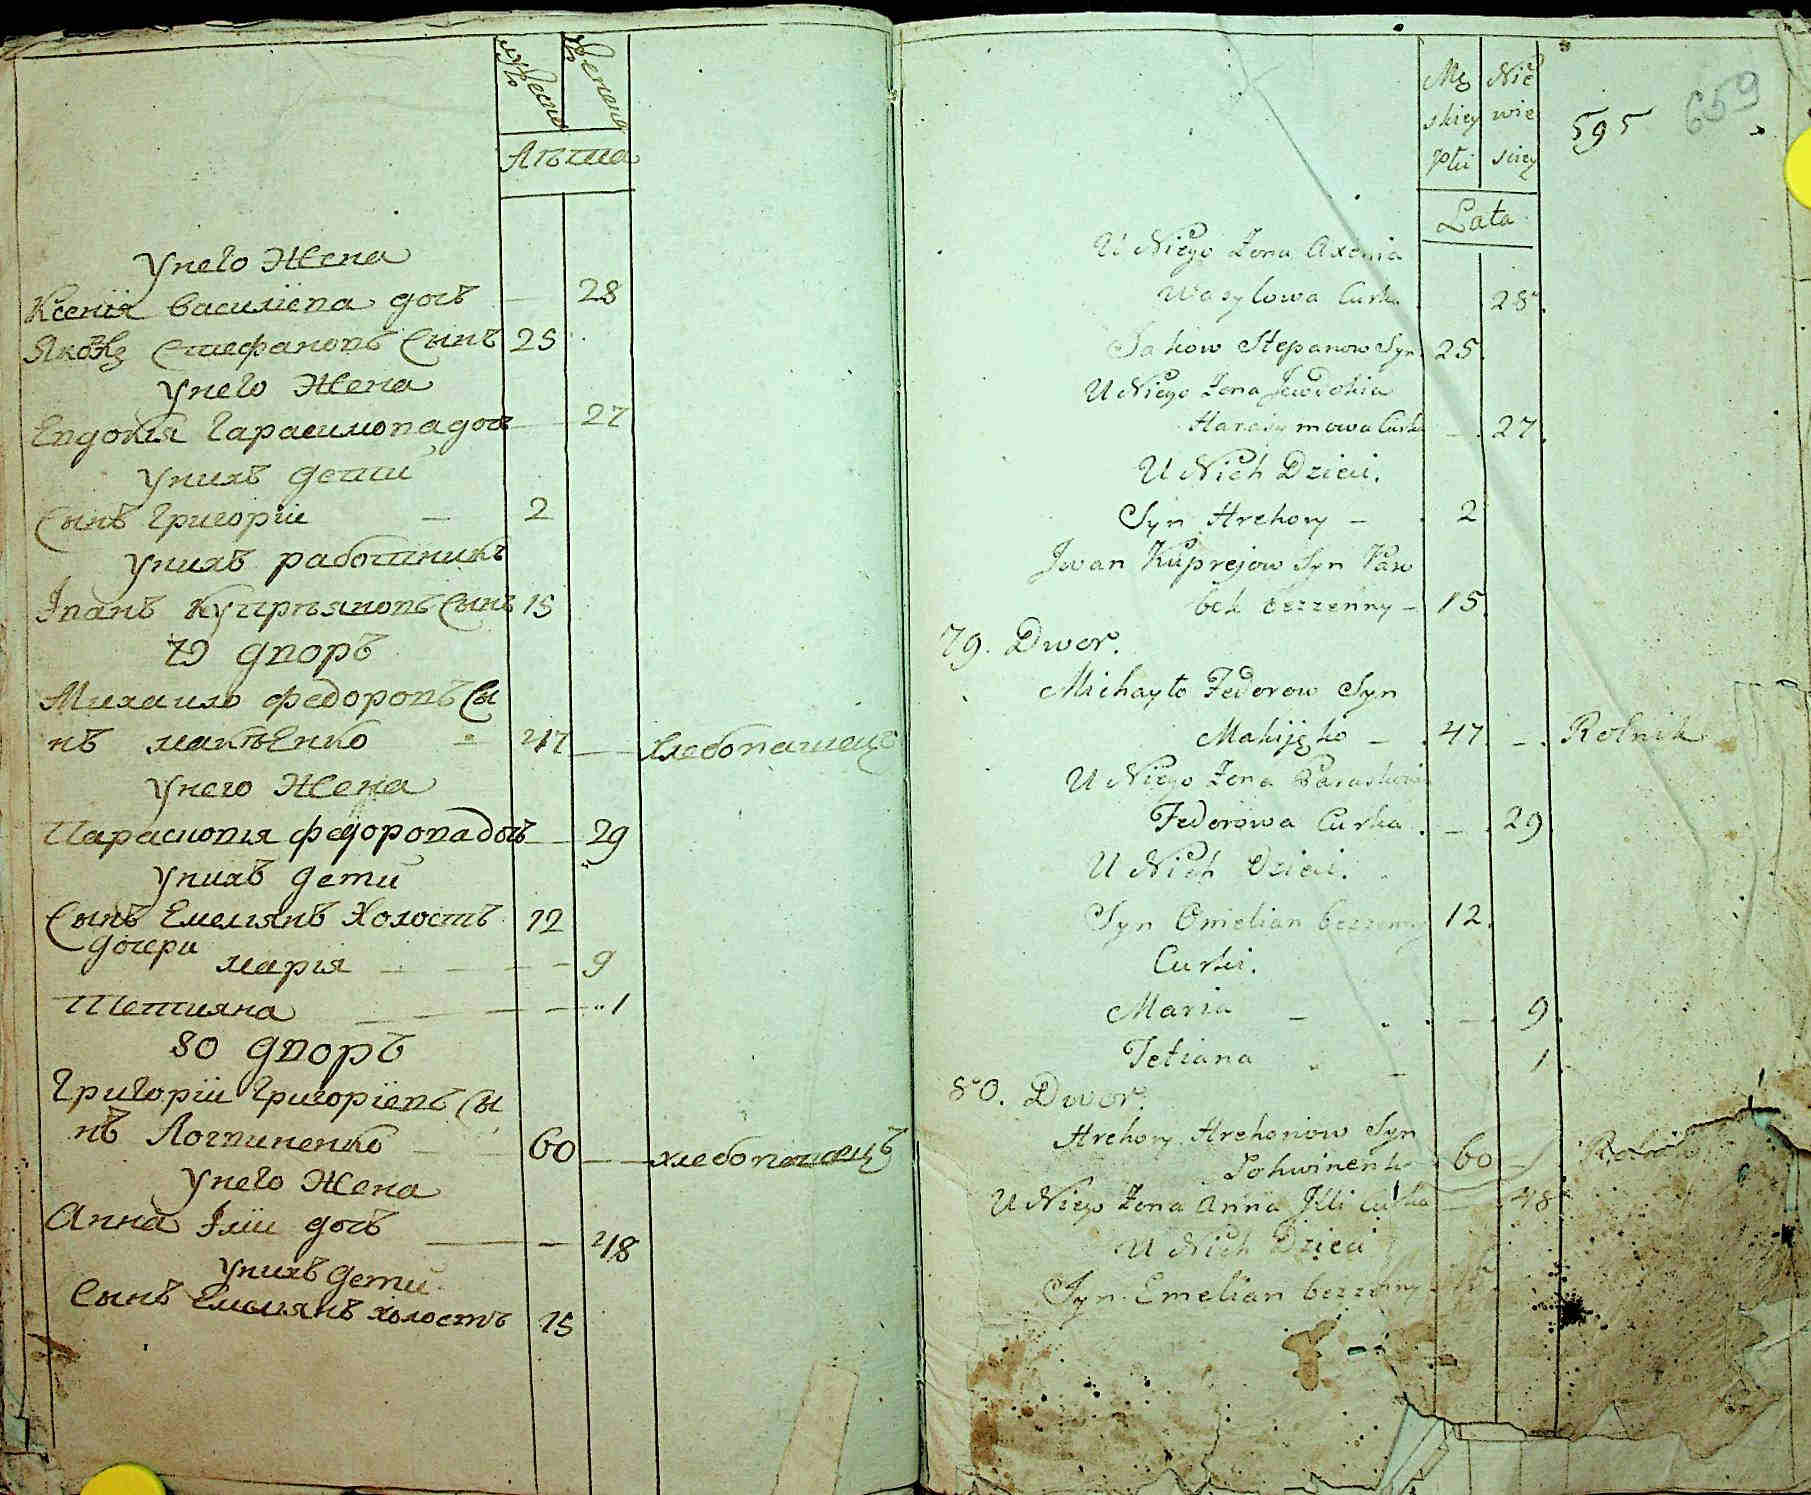 мужеска
женска
Лѣта
У него Жена
Ксенїя василїева дочъ 28
Яковъ Стефановъ Сынъ 25
У него Жена
Евдокїя Гарасимова доч 27
У нихъ дети
Сынъ Григорїи 2
У нихъ работникъ
Іванъ Купрѣяновъ Сынъ 15
79 дворъ
Михаило федоровъ Сы
нъ макѣенко 47 хлебопашецъ
У него Жена
Парасковїя федорова дочъ 29
У нихъ дети
Сынъ Емелянъ Холостъ 12
дочери
марїя 9
Тетияна 1
80 дворъ
Григорїи Григорїевъ Сы
нъ Логвиненко 60 хлебопашецъ
У него Жена
Анна Ілїи дочъ 48
У нихъ дети
Сынъ Емелянъ холостъ 15
Mę Nie
skiey wie
Płci sciey
Lata
595 659
U Niego Zona Axenia
Wasylowa Curka 28.
Jakow Stepanow Syn 25.
U Niego Zona Jewdokia
Harasymowa Curk 27.
U Nich Dzieci.
Syn Hrehory 2
Jwan Kuprejow Syn Paro
bek bezzenny 15.
79. Dwor.
Michayło Fedorow Syn
Makijęko 47 Rolnik
U Niego Zona Paraskewia
Fedorowa Curka 29
U Nich Dzieci.
Syn Omelian bezzenny 12.
Curki.
Maria 9.
Tetiana 1
80. Dwor.
Hrehory Hrehoriow Syn
Lohwinenko 60 Rolnik
U Niego Zona Anna Jlli Curka 48
U Nich Dzieci
Syn Emelian bezzenny